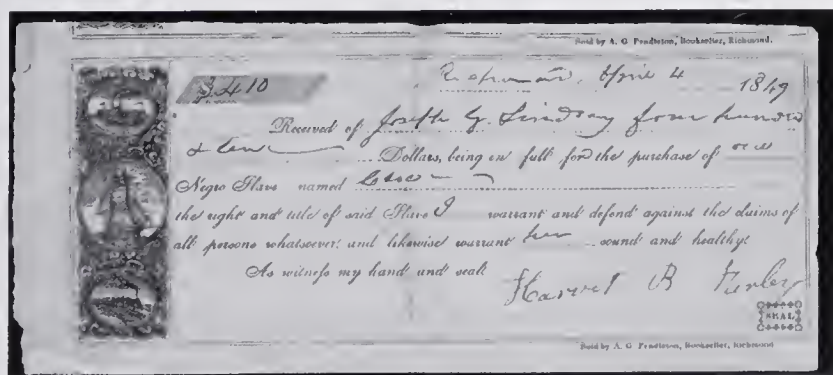 Sold by A. G. Pendleton, Bookseller, Richmond.
$410
Richmond, April 4 1849
Received of Joseph G. Lindsay four hundred
& ten Dollars, being in full for the purchase of one
Negro Slave named
the right and title of said Slave I warrant and defend against the claims of
all persons whatsoever; and likewise warrant her sound and healthy.
As witness my hand and seal.
B
SEAL
Sold by A. G. Pendleton, Bookseller, Richmond